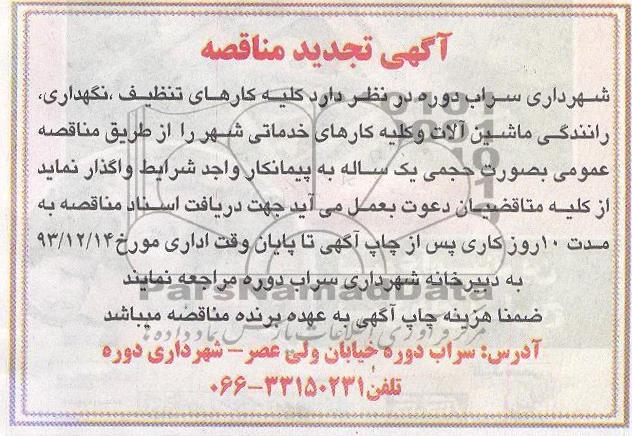 آگهی تجدید مناقصه
شهرداری سراب دوره در نظر دارد کلیه کارهای تنظیف ،نگهداری،
رانندگی ماشین آلات وکلیه کارهای خدماتی شهر را از طریق مناقصه
عمومی بصورت حجمی یک ساله به پیمانکار واجد شرایط واگذار نماید
از کلیه متاقضیان دعوت بعمل می آید جهت دریافت اسناد مناقصه به
مدت ۱۰روز کاری پس از چاپ آگهی تا پایان وقت اداری مورخ۹۳/۱۲/۱۴
به دبیرخانه شهرداری سراب دوره مراجعه نمایند
ParsNamadData
ضمنا هزینه چاپ آگهی به عهده برنده مناقصه میباشد
آدرس: سراب دوره خیابان ولی عصر– شهرداری دوره
تلفن۳۳۱۵۰۲۳۱–۰۶۶